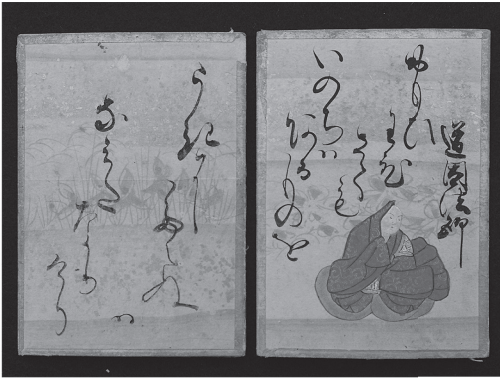 道因法師
おもひ
わひ
さても
いのちハ
あるものを
うきに
たへぬ
ハ
なみた
なり
けり